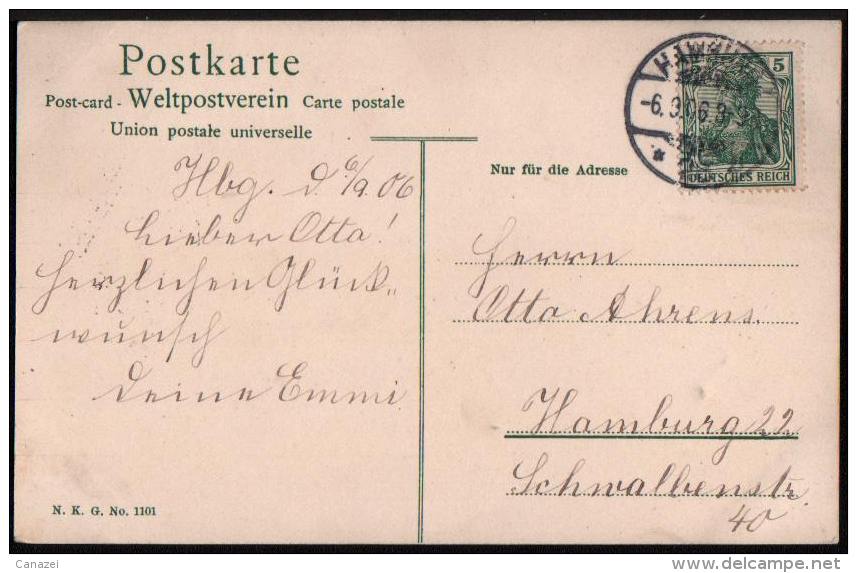 Postkarte
Post-card - Weltpostverein Carte postale
Union postale universelle
Hbg. d. 6/9. 06
Lieber Otto!
Herzlichen Glück„
wunsch
Deine Emmi
N. K. G. No. 1101
5
DEUTSCHES REICH
Nur für die Adresse
Herrn
Otto Ahrens.
Hamburg 22
Schwalbenstr.
40
Canazei
www.delcampe.net